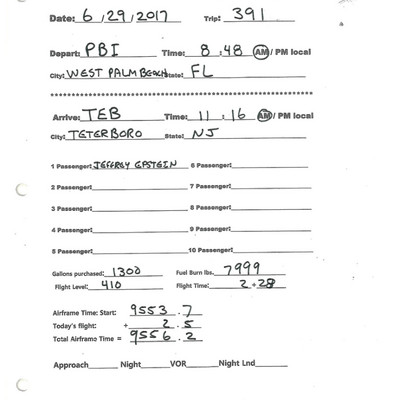 Date: 6/29/2017 Trip: 391
Depart: PBI Time: 8:48 AM / PM local
City: WEST PALM BEACH State: FL
************************************************************
Arrive: TEB Time: 11:16 AM / PM local
City: TETERBORO State: NJ
1 Passenger: JEFFREY EPSTEIN 6 Passenger:
2 Passenger: 7 Passenger:
3 Passenger: 8 Passenger:
4 Passenger: 9 Passenger:
5 Passenger: 10 Passenger:
Gallons purchased: 1300 Fuel Burn lbs. 7999
Flight Level: 410 Flight Time: 2+28
Airframe Time: Start: 9553.7
Today's flight: + 2.5
Total Airframe Time = 9556.2
Approach Night VOR Night Lnd